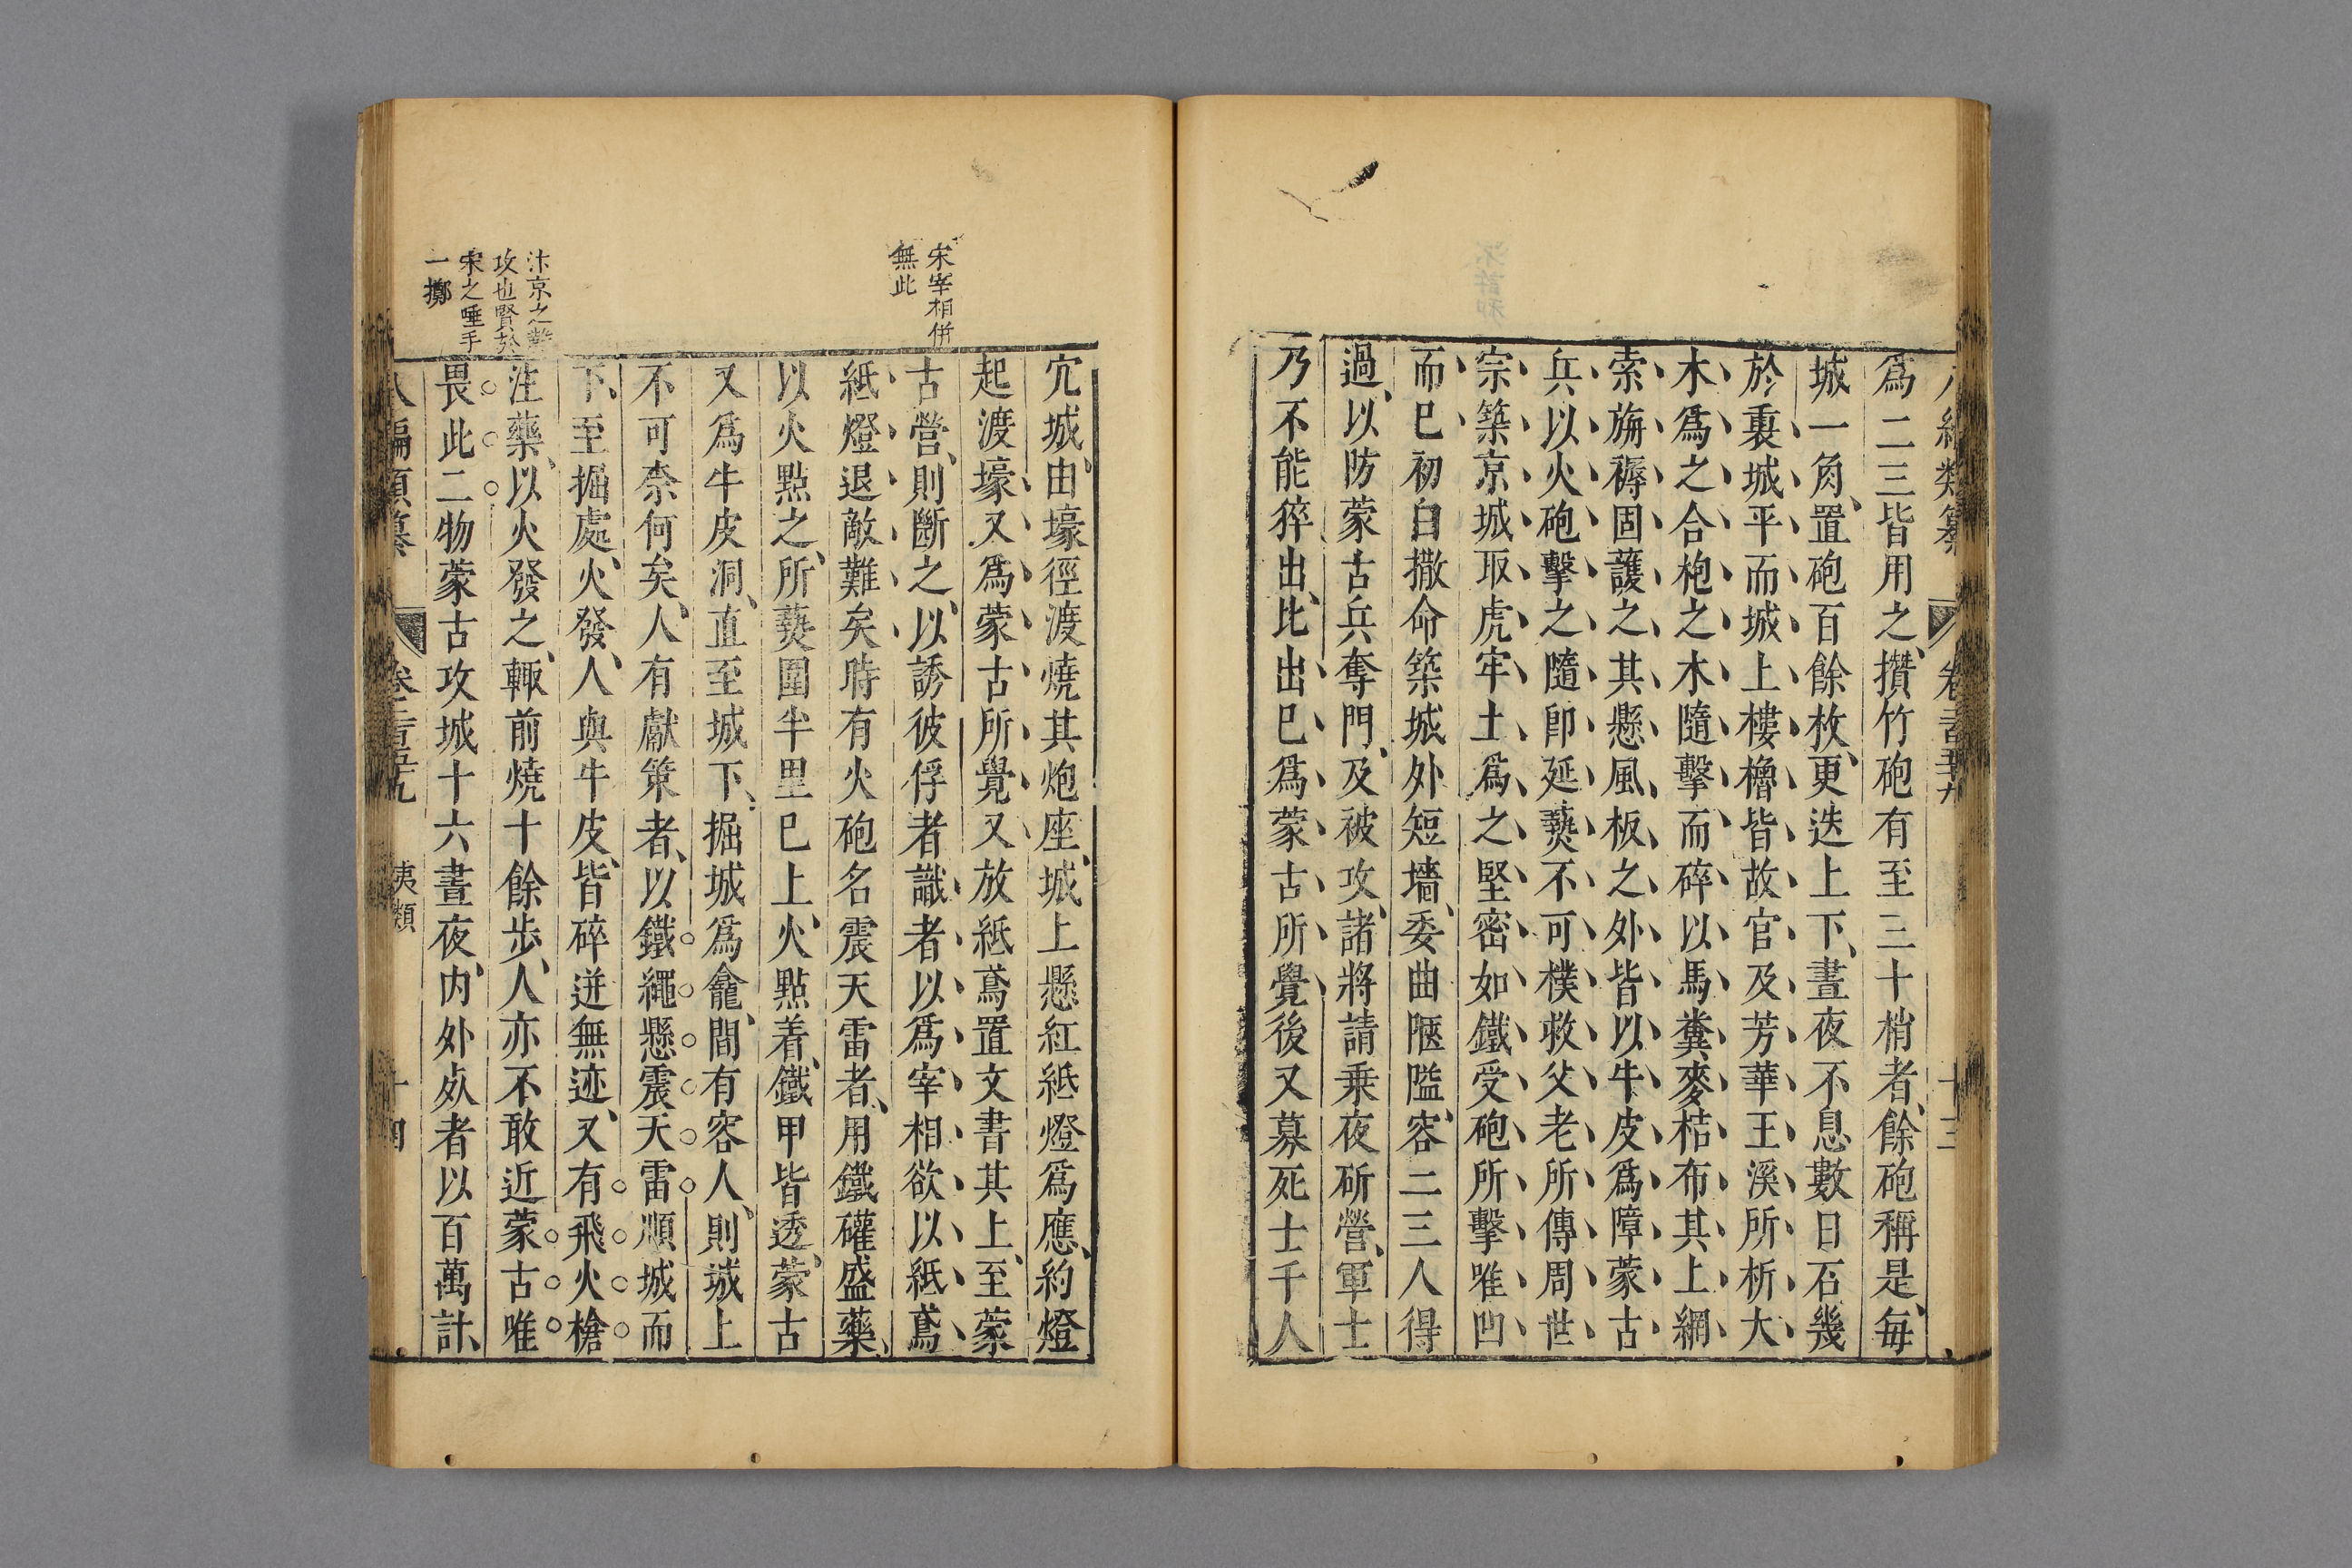 爲二三皆用之攢竹砲有至三十梢者餘砲稱是每
城一角置砲百餘枚更迭上下晝夜不息數日石幾
於裏城平而城上樓櫓皆故宮及芳華王溪所析大
木爲之合枹之木隨擊而碎以馬糞麥秸布其上網
索旃褥固護之其懸風板之外皆以牛皮爲障蒙古
兵以火砲擊之隨卽延爇不可樸救父老所傳周世
宗築京城取虎牢土爲之堅密如鐵受砲所擊唯凹
而已初白撒命築城外短墻委曲陿隘容二三人得
過以防蒙古兵奪門及被攻諸將請乗夜斫營軍士
乃不能猝出比出已爲蒙古所覺後又募死士千人
宋宰相併
無此
汴京之難
攻也賢於
宋之唾手
一擲
穴城由壕徑渡燒其炮座城上懸紅紙燈爲應約燈
起渡壕又爲蒙古所覺又放紙鳶置文書其上至蒙
古營則斷之以誘彼俘者識者以爲宰相欲以紙鳶
紙燈退敵難矣時有火砲名震天雷者用鐵礶盛藥
以火點之所爇圍半里已上火點着鐵甲皆透蒙古
又爲牛皮洞直至城下掘城爲龕間有容人則城上
不可柰何矣人有獻策者以鐵繩懸震天雷順城而
下至掘處火發人與牛皮皆碎迸無迹又有飛火槍
注藥以火發之輙前燒十餘步人亦不敢近蒙古唯
畏此二物蒙古攻城十六晝夜内外死者以百萬計
八編類纂 卷二百五九 夷類 十四